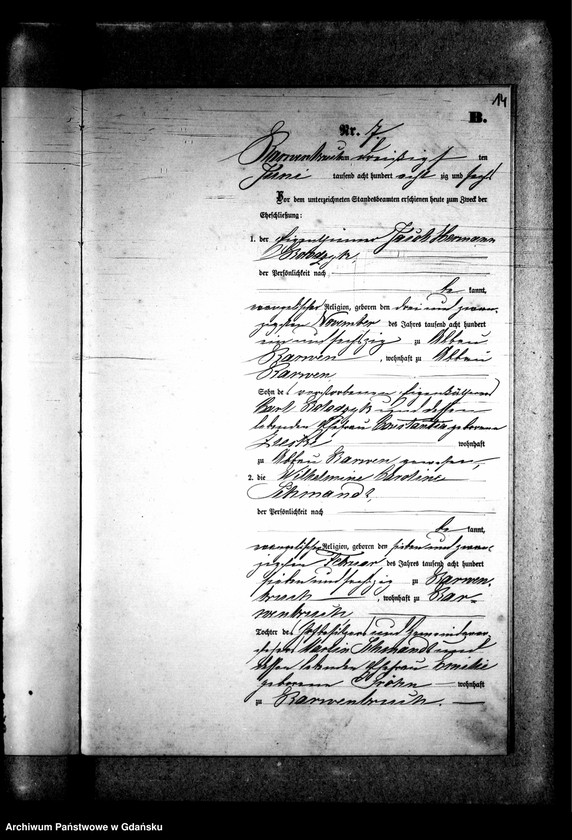 14
B.
Nr. 7.
Barwenbruch dreißigst ten
Juni tausend acht hundert acht zig und sechs
Vor dem unterzeichneten Standesbeamten erschienen heute zum Zweck der
Eheschließung:
1. der Eigenthümer Jacob Hermann
der Persönlichkeit nach
be kannt,
evangelischer Religion, geboren den drei und zwan-
zigsten November des Jahres tausend acht hundert
ein und sechzig zu Abbau
Barwen, wohnhaft zu Abbau
Barwen
Sohn des verstorbenen Eigenthümers
Karl und dessen
lebenden Ehefrau Constantia geborene
wohnhaft
zu Abbau Barwen gewesen,
2. die Wilhelmine Caroline
Schmandt,
der Persönlichkeit nach
be kannt,
evangelischer Religion, geboren den sieben und zwan-
zigsten Februar des Jahres tausend acht hundert
sieben und sechzig zu Barwen-
bruch, wohnhaft zu Bar-
wenbruch
Tochter des Hofbesitzers und Gemeindevor-
stehers Martin Schmandt und
dessen lebenden Ehefrau Emilie
geborene Fröhn wohnhaft
zu Barwenbruch.
Archiwum Państwowe w Gdańsku